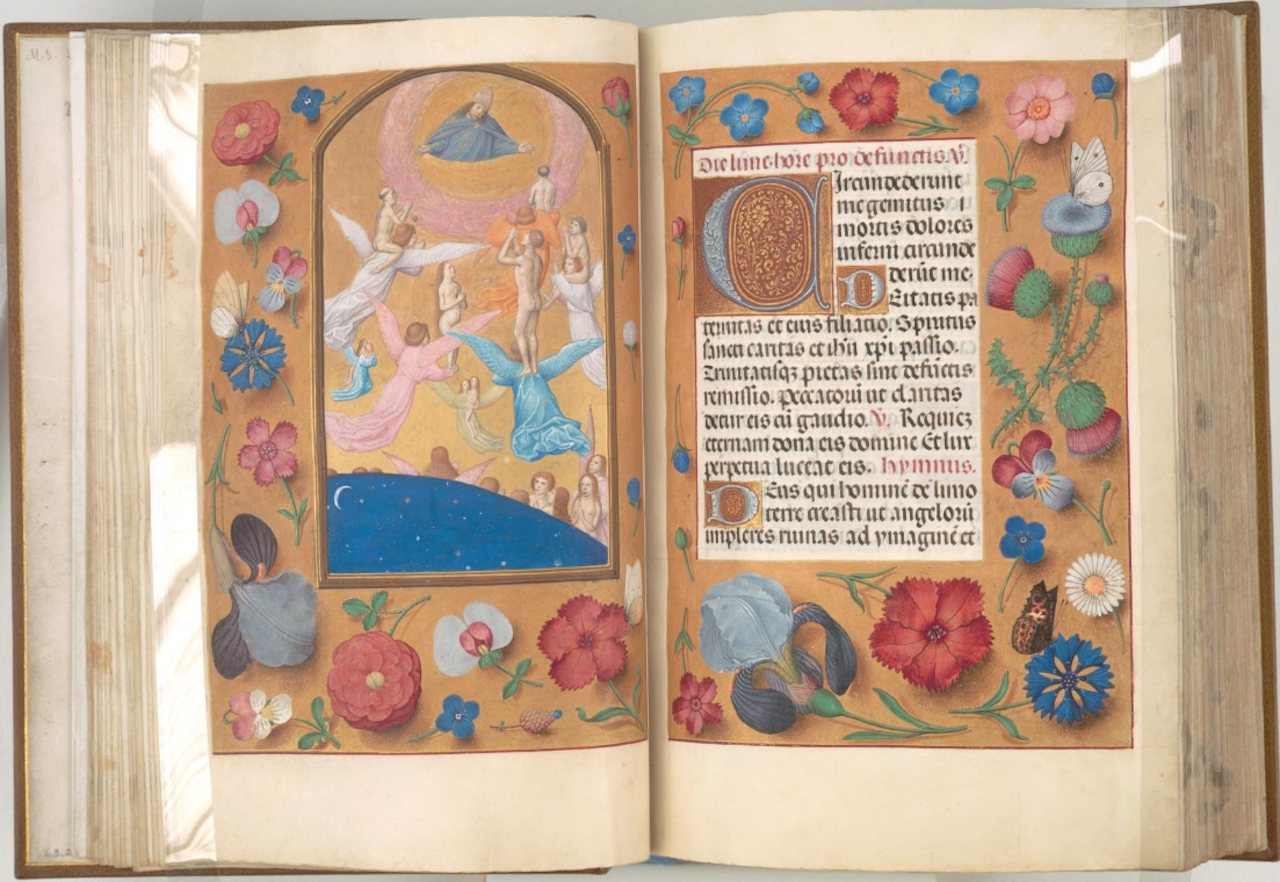 63.2
Die lune hore pro defunctis. V.
Circundederunt
me gemitus
mortis dolores
inferni circunde
derūt me.
Deitatis pa
ternitas et eius filiatio. Spiritus
sancti caritas et ihū xp̄i passio.
Trinitatisqꝫ pietas sint defūctis
remissio. Peccatorū ut claritas
detur eis cū gaudio. V. Requiez
eternam dona eis domine Et lux
perpetua luceat eis. hymnus.
Deus qui hominē de limo
terre creasti ut angelorū
impleres ruinas ad ymaginē et